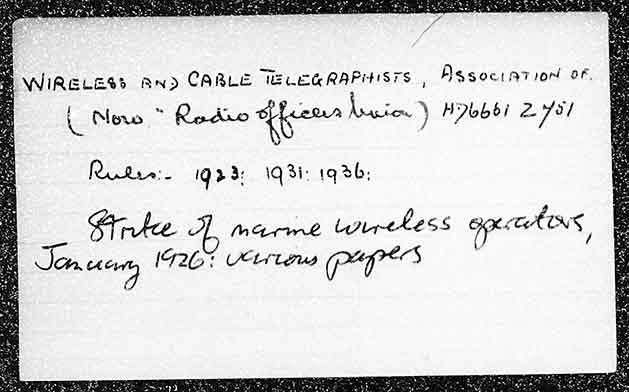 WIRELESS AND CABLE TELEGRAPHISTS, ASSOCIATION OF.
(Now "Radio officers Union) HD6661 Z 451
Rules:- 1923: 1931: 1936:
Strike of marine wireless operators,
January 1926: various papers